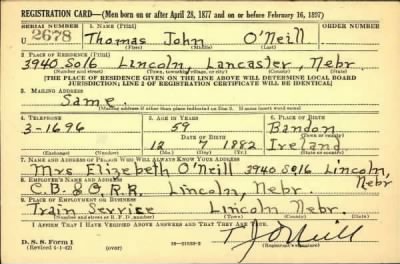 REGISTRATION CARD—(Men born on or after April 28, 1877 and on or before February 16, 1897)
SERIAL NUMBER 1. NAME (Print) ORDER NUMBER
U 2678 Thomas John O'Neill
(First) (Middle) (Last)
2. PLACE OF RESIDENCE (Print)
3940 So16 Lincoln, Lancaster, Nebr
(Number and street) (Town, township, village, or city) (County) (State)
[THE PLACE OF RESIDENCE GIVEN ON THE LINE ABOVE WILL DETERMINE LOCAL BOARD
JURISDICTION; LINE 2 OF REGISTRATION CERTIFICATE WILL BE IDENTICAL]
3. MAILING ADDRESS
Same.
[Mailing address if other than place indicated on line 2. If same insert word same]
4. TELEPHONE 5. AGE IN YEARS 6. PLACE OF BIRTH
3-1696 59 Bandon
DATE OF BIRTH (Town or county)
12 7 1882 Ireland
(Exchange) (Number) (Mo.) (Day) (Yr.) (State or country)
7. NAME AND ADDRESS OF PERSON WHO WILL ALWAYS KNOW YOUR ADDRESS
Mrs Elizebeth O'Neill 3940 So16 Lincoln,
Nebr
8. EMPLOYER'S NAME AND ADDRESS
C.B. & Q. R.R. Lincoln, Nebr.
9. PLACE OF EMPLOYMENT OR BUSINESS
Train Service Lincoln Nebr.
(Number and street or R. F. D. number) (Town) (County) (State)
I AFFIRM THAT I HAVE VERIFIED ABOVE ANSWERS AND THAT THEY ARE TRUE.
T J O'Neill
D. S. S. Form 1
(Revised 4-1-42) (over) (Registrant's signature)